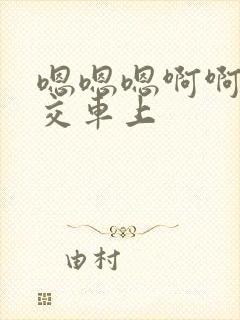 嗯嗯嗯啊啊
交车上
由村